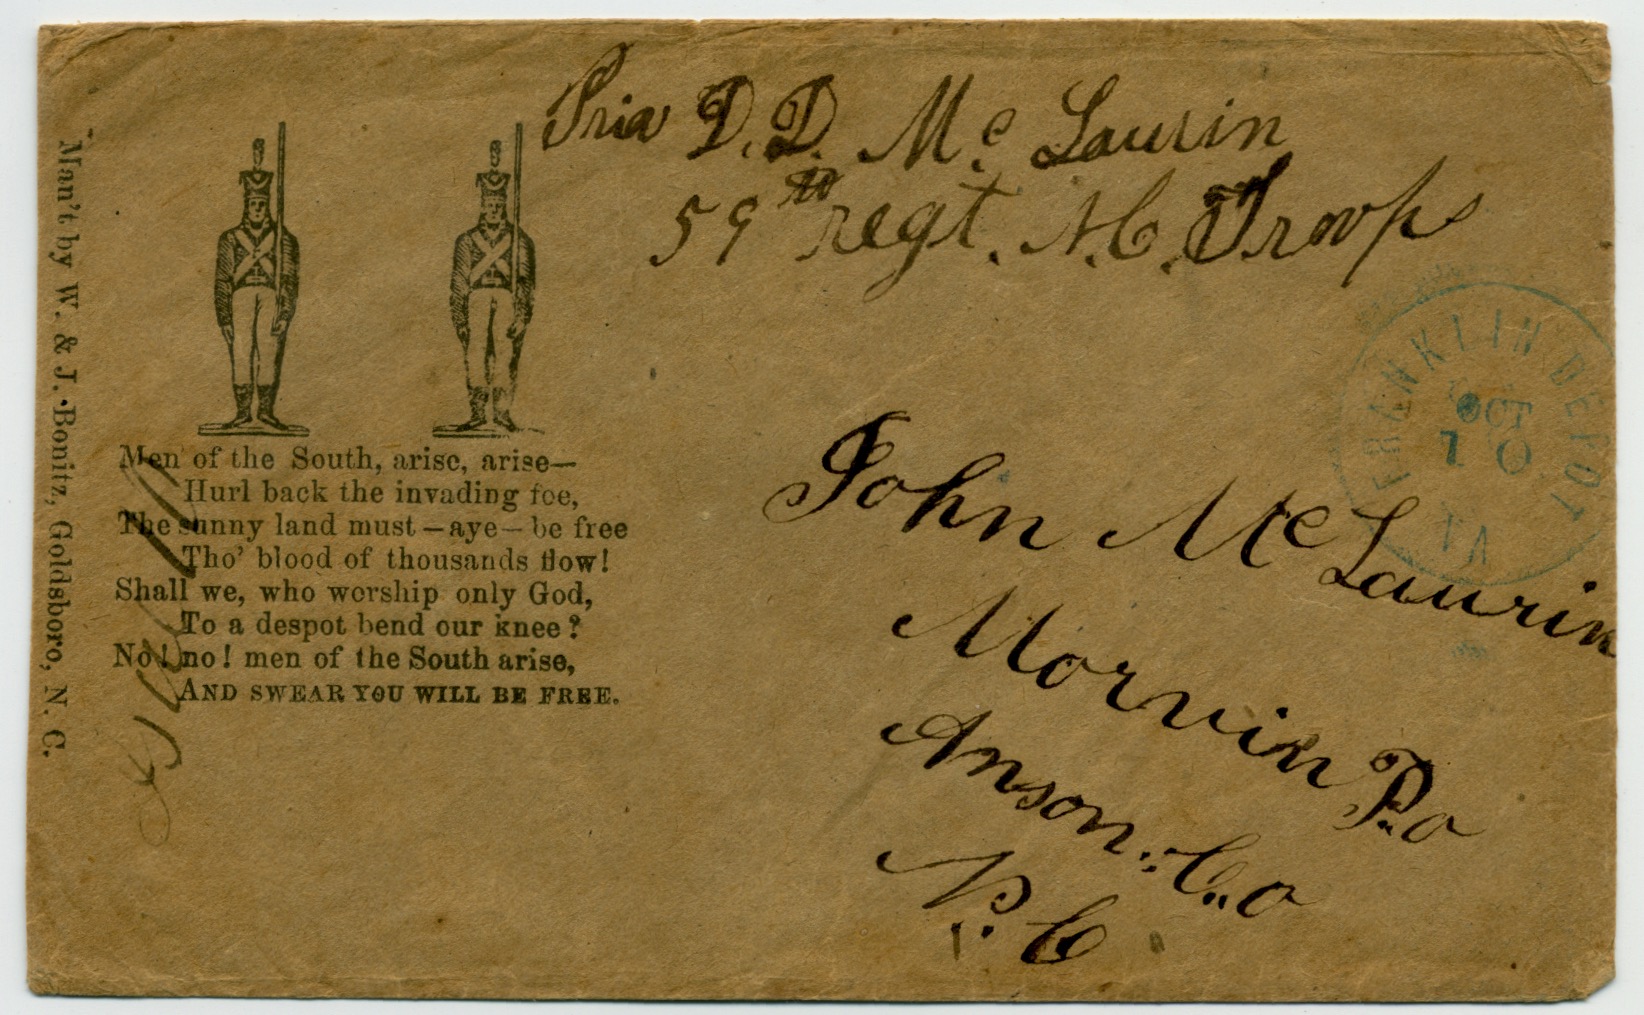 Man't by W. & J. Bonitz, Goldsboro, N. C.
Priv D. D. Mc Laurin
59th regt. N. C. Troops
FRANKLIN DEPOT
OCT
10
VA
Men of the South, arise, arise—
Hurl back the invading foe,
The sunny land must—aye—be free
Tho' blood of thousands flow!
Shall we, who worship only God,
To a despot bend our knee?
No! no! men of the South arise,
AND SWEAR YOU WILL BE FREE.
John Mc Laurin
Morvin P.o
Anson. Co
N. C